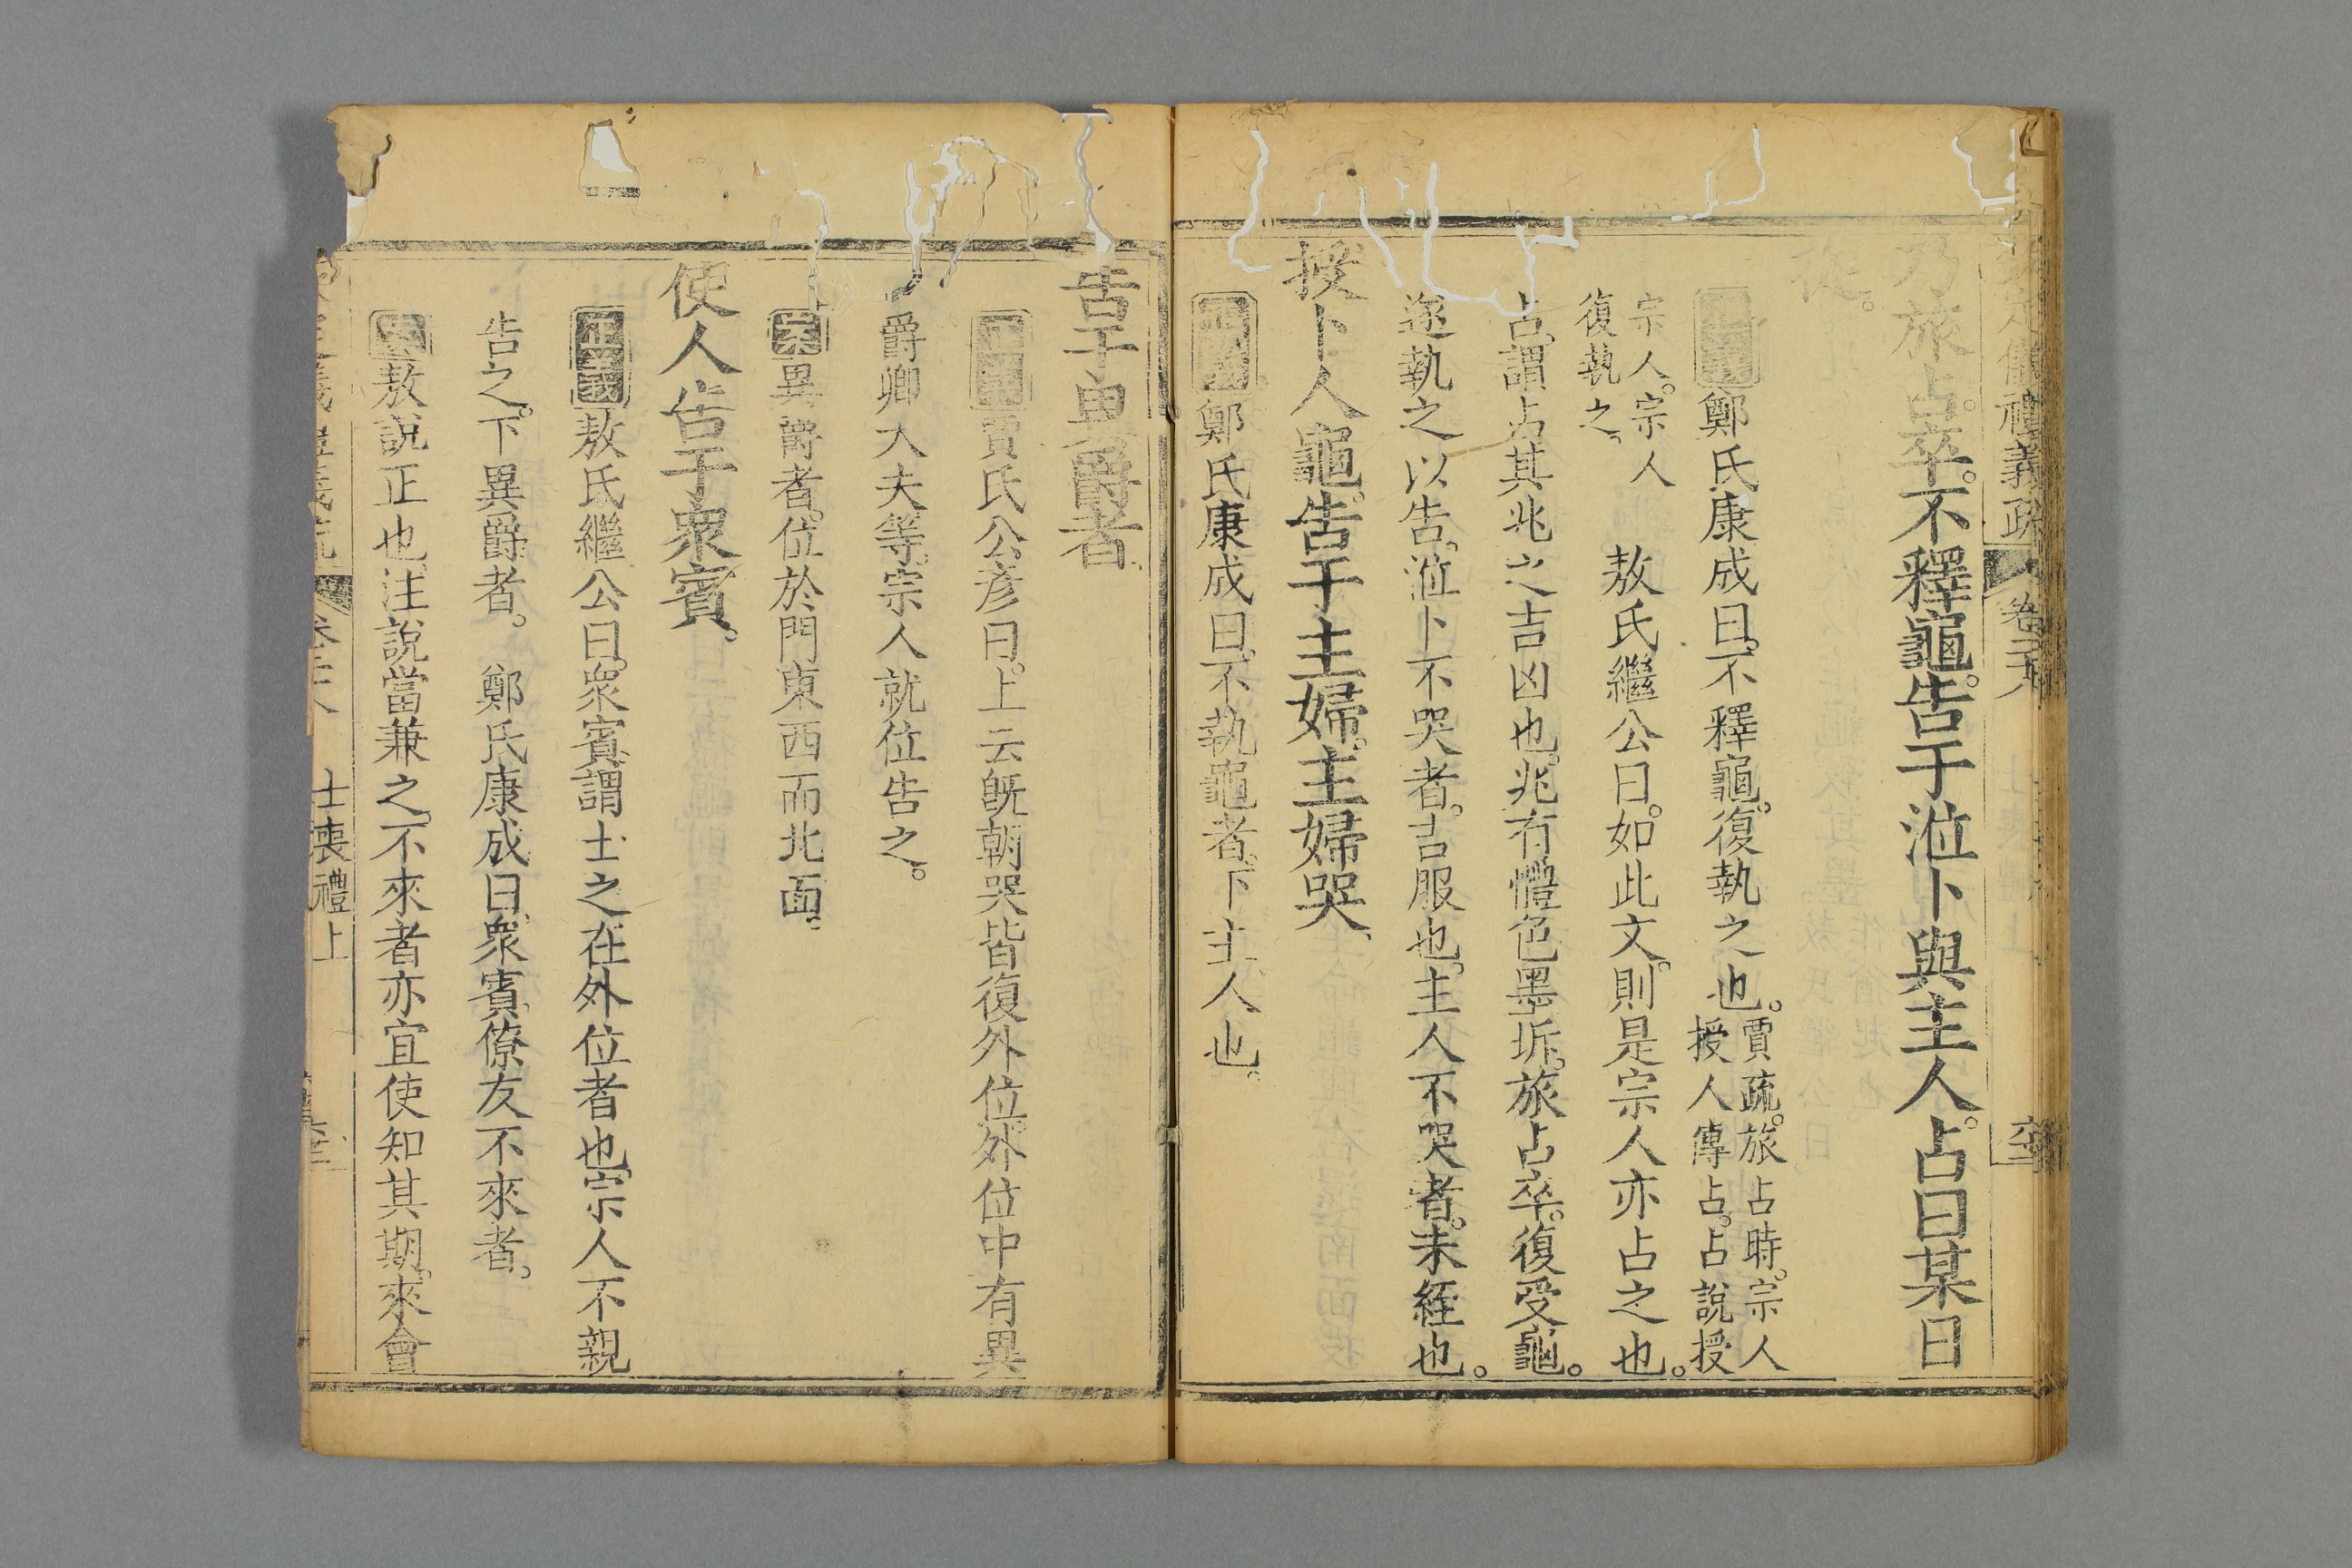 欽定儀禮義疏 卷二十八 六十二
乃旅占。卒。不釋龜。告于涖卜與主人。占曰某日
從。
正義鄭氏康成曰。不釋龜。復執之也。賈疏。旅占時。宗人授人傳占。占說授
宗人。宗人復執之。 敖氏繼公曰。如此文。則是宗人亦占之也。
占謂占其兆之吉凶也。兆有體色墨坼。旅占卒。復受龜。
遂執之以告。涖卜不哭者。吉服也。主人不哭者。未絰也。
授卜人龜。告于主婦。主婦哭。
正義鄭氏康成曰。不執龜者。下主人也。
告于異爵者。
正義賈氏公彥曰。上云旣朝哭皆復外位。外位中有異
爵卿大夫等。宗人就位告之。
案異爵者。位於門東西而北面。
使人告于衆賓。
正義敖氏繼公曰。衆賓謂士之在外位者也。宗人不親
告之。下異爵者。 鄭氏康成曰。衆賓。僚友不來者。
案敖說正也。注說當兼之。不來者亦宜使知其期。來會
儀禮義疏 士喪禮上